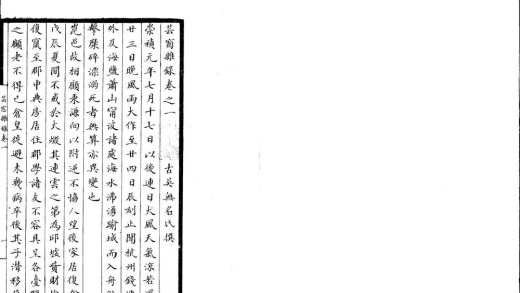 芸窗雜錄卷之一
古吳無名氏撰
崇禎元年七月十七日以後連日大風天氣涼若
廿三日晚風雨大作至廿四日辰刻止聞杭州錢
外及海鹽蕭山甯波諸處海水沸湧踰城而入舟
擊壓碎漂溺死者無算亦異變也
崑邑故相顧秉謙向以附逆不協人望後家居復
戊辰夏間不戒於火燬其連雲之第為邱墟貲財
復竄至郡中典房居住郡學諸友不容具呈各臺
之顧老不得已倉皇徙避未幾病卒後其子潛移
芸窗雜錄卷一
一